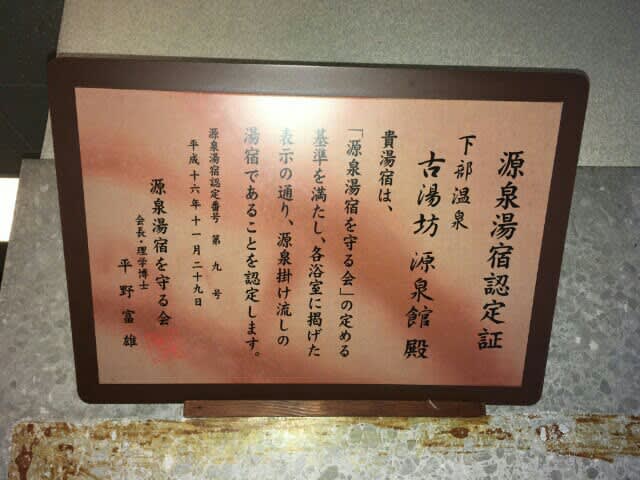 源泉湯宿認定証
下部温泉
古湯坊 源泉館 殿
貴湯宿は、
「源泉湯宿を守る会」の定める
基準を満たし、各浴室に掲げた
表示の通り、源泉掛け流しの
湯宿であることを認定します。
源泉湯宿認定番号 第 九 号
平成十六年十一月二十九日
源泉湯宿を守る会
会長・理学博士
平野富雄